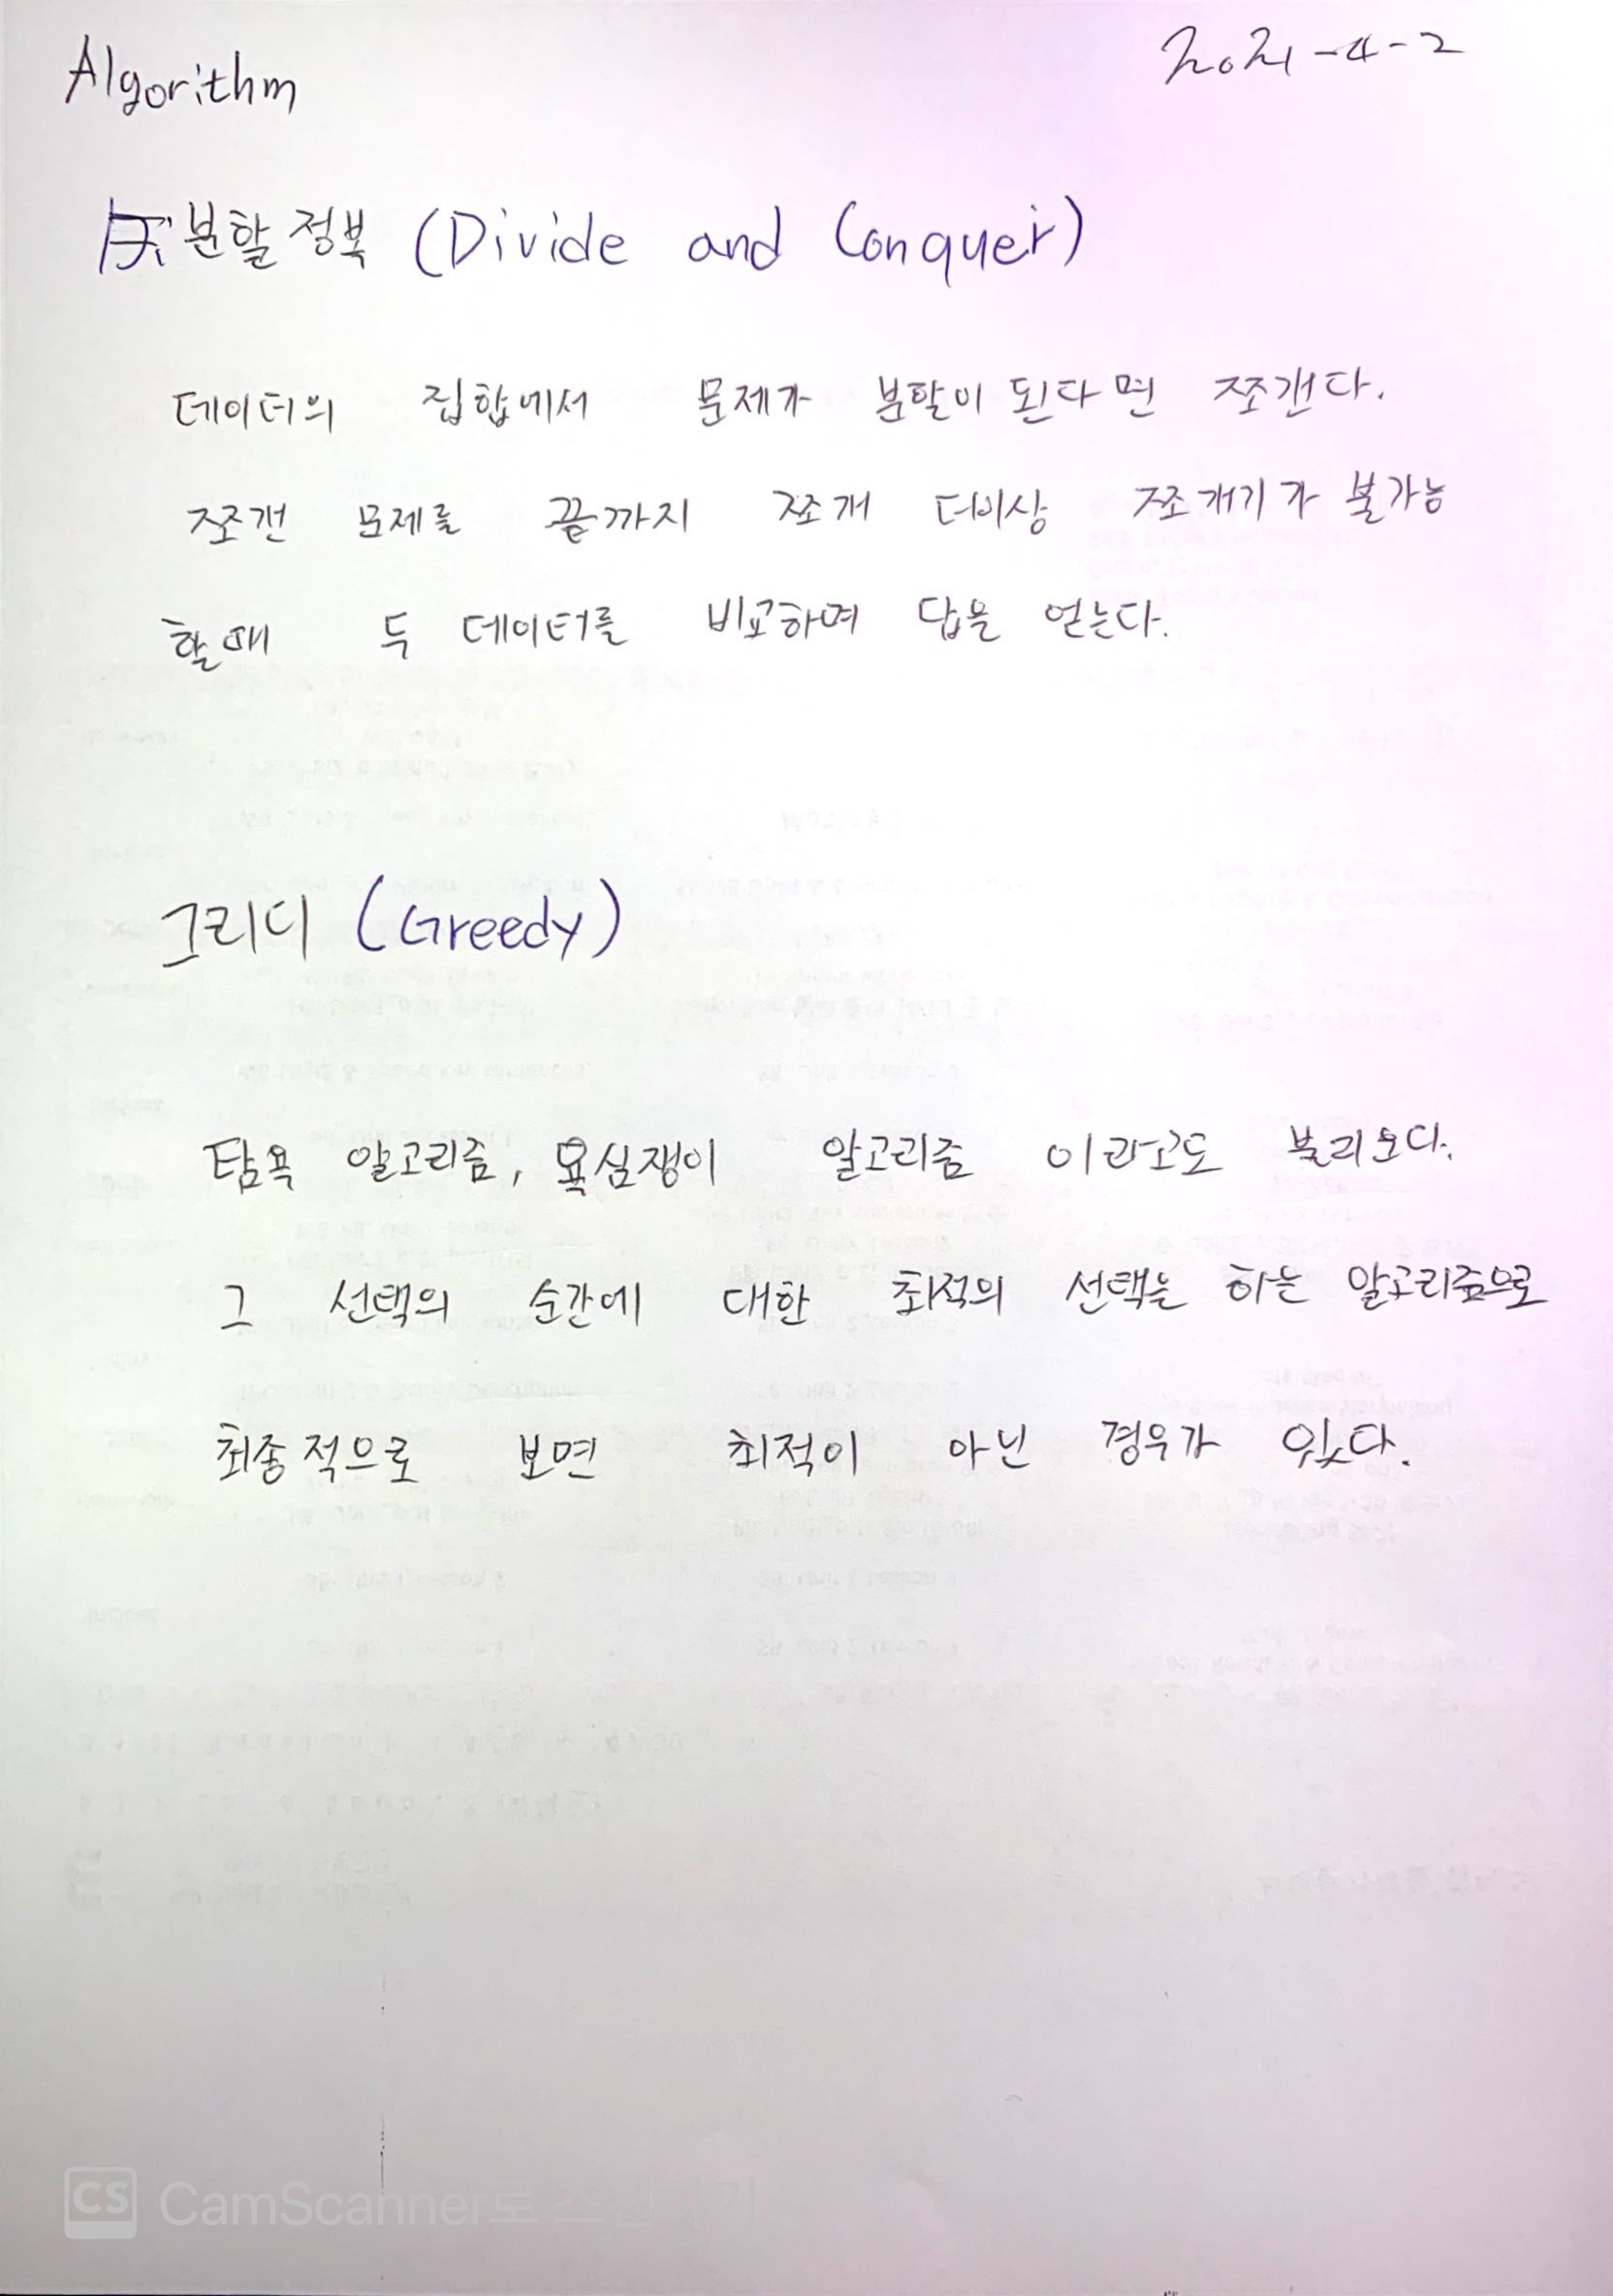 Algorithm
2021-4-2
분할정복 (Divide and Conquer)
데이터의 집합에서 문제가 분할이 된다면 쪼갠다.
쪼갠 문제를 끝까지 쪼개 더이상 쪼개기가 불가능
할때 두 데이터를 비교하며 답을 얻는다.
그리디 (Greedy)
탐욕 알고리즘, 욕심쟁이 알고리즘 이라고도 불리오다.
그 선택의 순간에 대한 최적의 선택을 하는 알고리즘으로
최종적으로 보면 최적이 아닌 경우가 있다.
CS CamScanner로 스캔하기